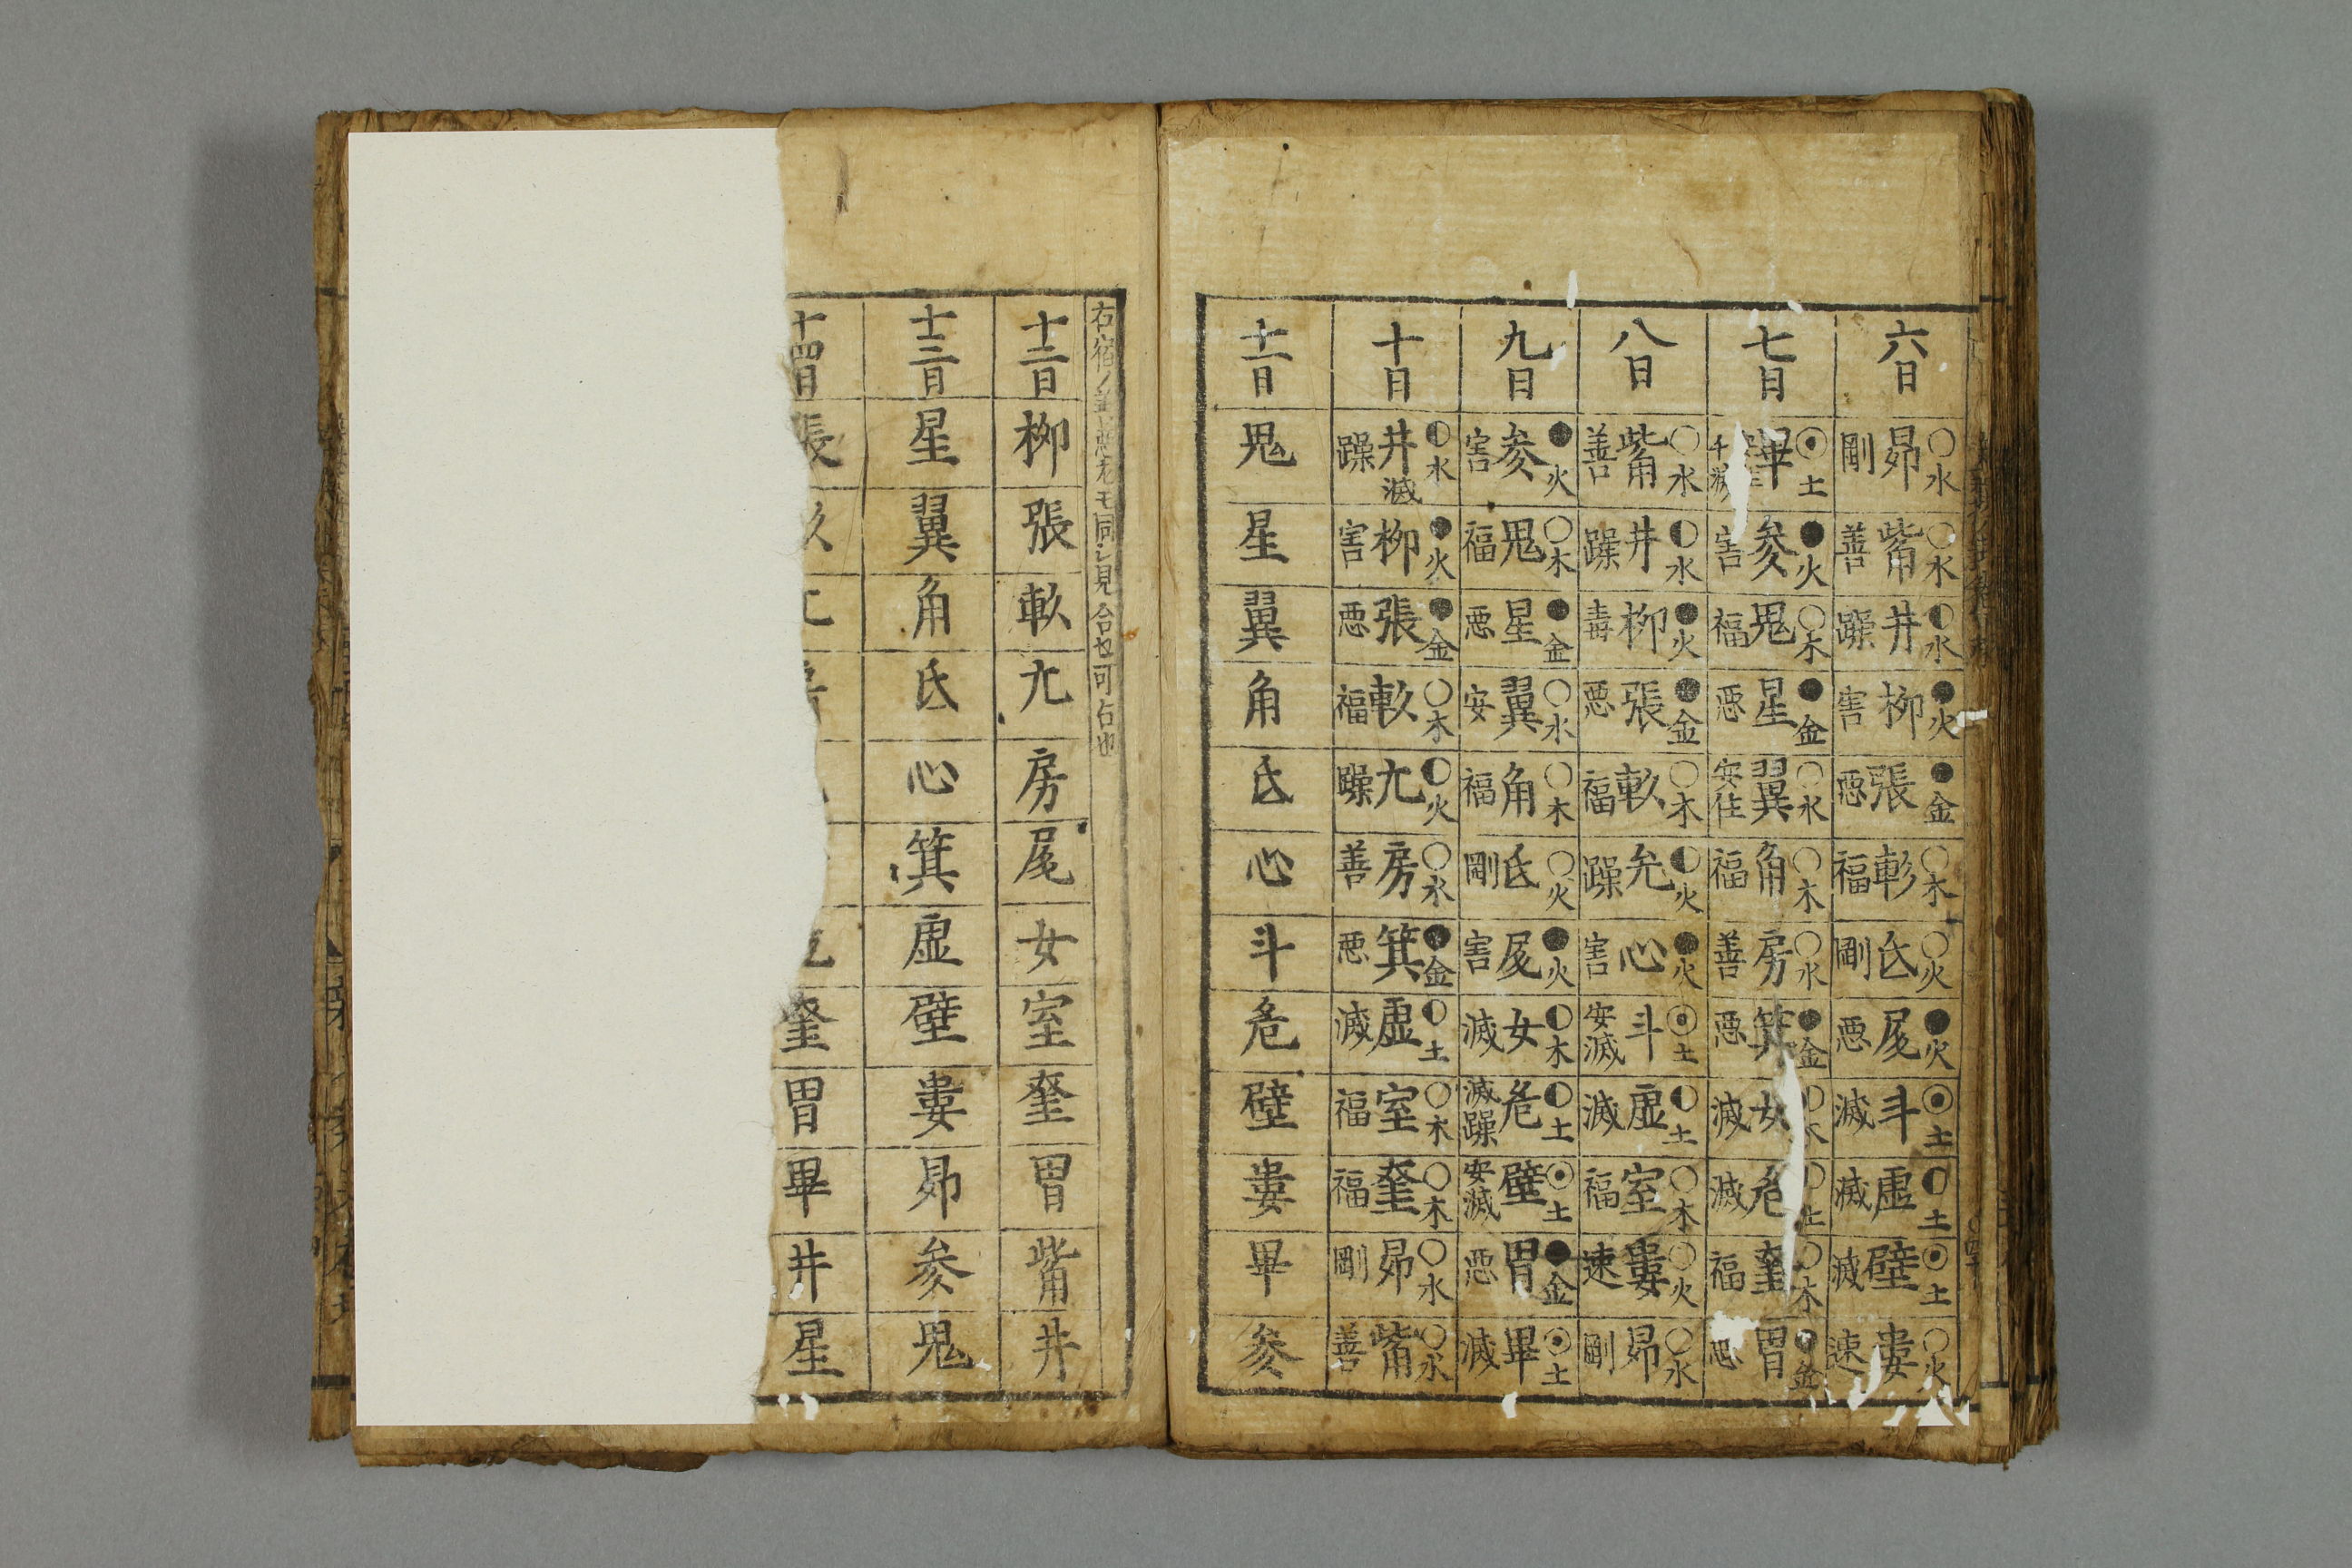 六日
○水 昴 剛
○水 觜 善
◐水 井 躁
●火 柳 害
●金 張 悪
○木 軫 福
○火 氐 剛
●火 尾 悪
◉土 斗 滅
◐土 虚 滅
◉土 壁 滅
○火 婁 速
七日
◉土 畢
●火 参 害
○木 鬼 福
●金 星 悪
○水 翼 安住
○木 角 福
○水 房 善
●金 箕 悪
木 女 滅
土 危 滅
○木 奎 福
●金 胃 悪
八日
○水 觜 善
◐水 井 躁
●火 柳 毒
●金 張 悪
○木 軫 福
◐火 亢 躁
●火 心 害
◉土 斗 安滅
◐土 虚 滅
○木 室 福
○火 婁 速
○水 昴 剛
九日
●火 参 害
○木 鬼 福
●金 星 悪
○水 翼 安
○木 角 福
○火 氐 剛
●火 尾 害
◐木 女 滅
◐土 危 滅躁
◉土 壁 安滅
●金 胃 悪
◉土 畢 滅
十日
◐水 井 滅 躁
●火 柳 害
●金 張 悪
○木 軫 福
◐火 亢 躁
○水 房 善
●金 箕 悪
◐土 虚 滅
○木 室 福
○木 奎 福
○水 昴 剛
○水 觜 善
十一日
鬼
星
翼
角
氐
心
斗
危
壁
婁
畢
参
右宿ノ善悪尤モ同シ見合セ可占也
十二日
柳
張
軫
亢
房
尾
女
室
奎
胃
觜
井
十三日
星
翼
角
氐
心
箕
虚
壁
婁
昴
参
鬼
十四日
張
奎
胃
畢
井
星